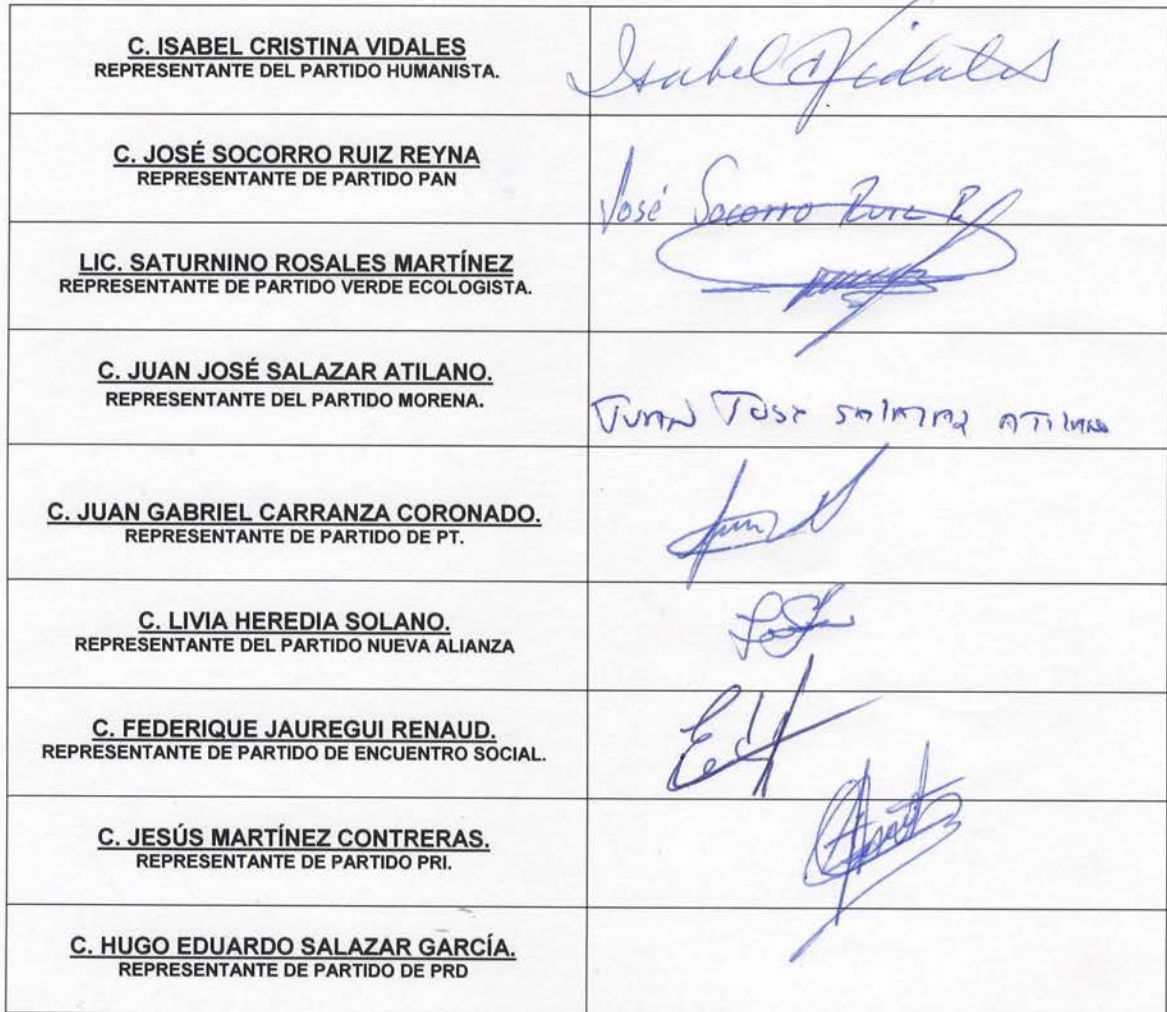 C. ISABEL CRISTINA VIDALES
REPRESENTANTE DEL PARTIDO HUMANISTA.
Isabel C Vidales
C. JOSÉ SOCORRO RUIZ REYNA
REPRESENTANTE DE PARTIDO PAN
José Socorro Ruiz R
LIC. SATURNINO ROSALES MARTÍNEZ
REPRESENTANTE DE PARTIDO VERDE ECOLOGISTA.
C. JUAN JOSÉ SALAZAR ATILANO.
REPRESENTANTE DEL PARTIDO MORENA.
JUAN JOSE SALAZAR ATILANO
C. JUAN GABRIEL CARRANZA CORONADO.
REPRESENTANTE DE PARTIDO DE PT.
C. LIVIA HEREDIA SOLANO.
REPRESENTANTE DEL PARTIDO NUEVA ALIANZA
C. FEDERIQUE JAUREGUI RENAUD.
REPRESENTANTE DE PARTIDO DE ENCUENTRO SOCIAL.
C. JESÚS MARTÍNEZ CONTRERAS.
REPRESENTANTE DE PARTIDO PRI.
C. HUGO EDUARDO SALAZAR GARCÍA.
REPRESENTANTE DE PARTIDO DE PRD